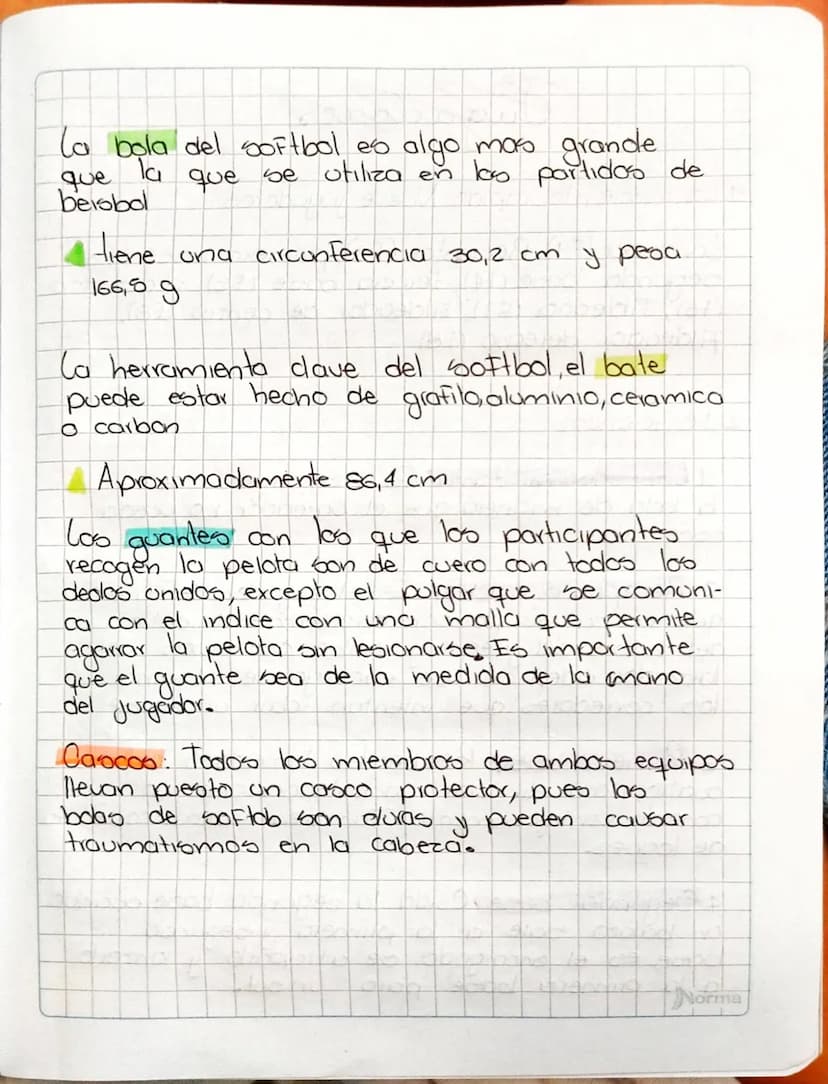 La bola del softbol es algo mas grande
que la que se utiliza en los partidos de
beisbol
tiene una circunferencia 30,2 cm y pesa
166,8 g
La herramienta clave del softbol, el bate
puede estar hecho de grafito, aluminio, ceramica
o carbon
Aproximadamente 86,4 cm
Los guantes con los que los participantes
recogen la pelota son de cuero con todos los
dedos unidos, excepto el pulgar que se comuni-
ca con el indice con una malla que permite
agarrar la pelota sin lesionarse. Es importante
que el guante sea de la medida de la mano
del jugador.
Cascos: Todos los miembros de ambos equipos
llevan puesto un casco protector, pues las
bolas de softob son duras y pueden causar
traumatismos en la cabeza.
Norma